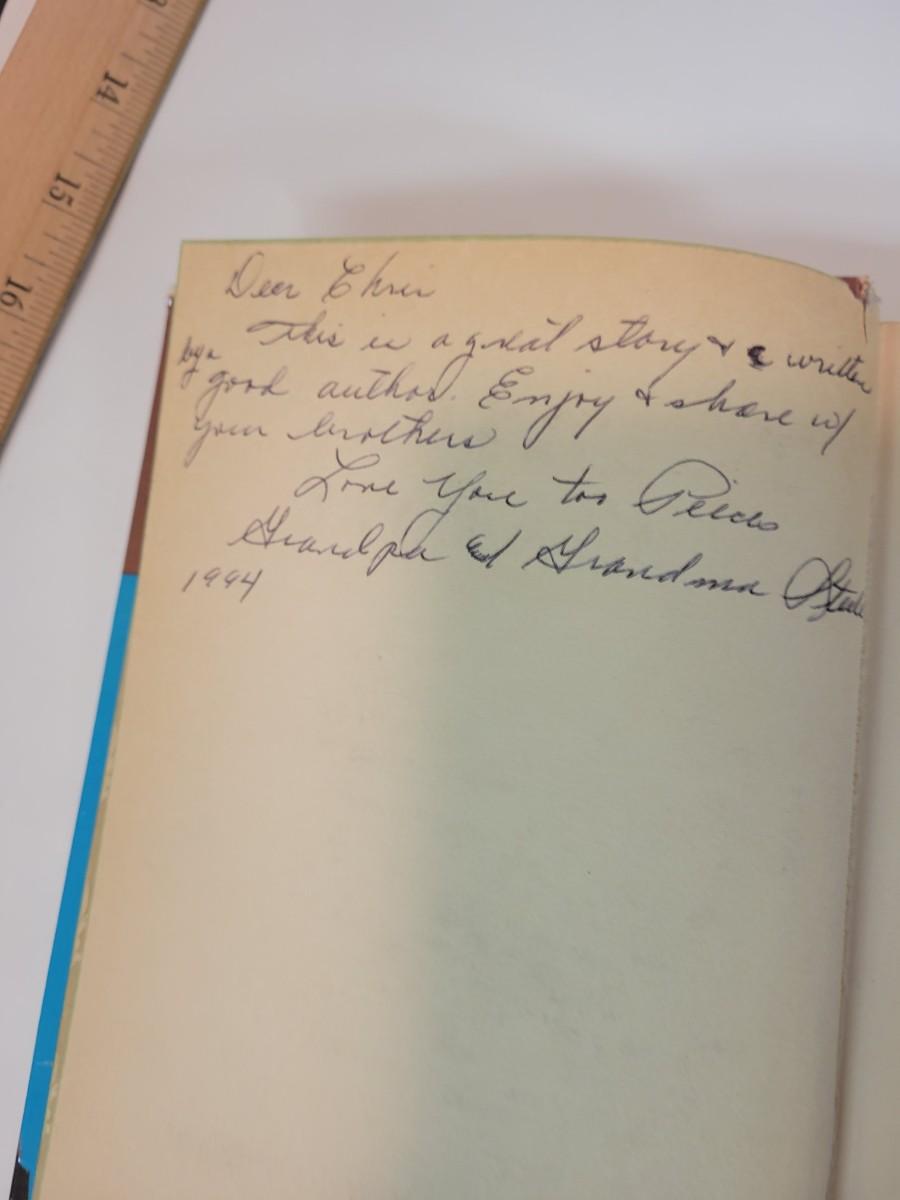 13
14
15
16
Dear Chris
This is a great story & a written
by a
good author. Enjoy & share w/
your brothers
Love You too Pieces
Grandpa and Grandma
1994